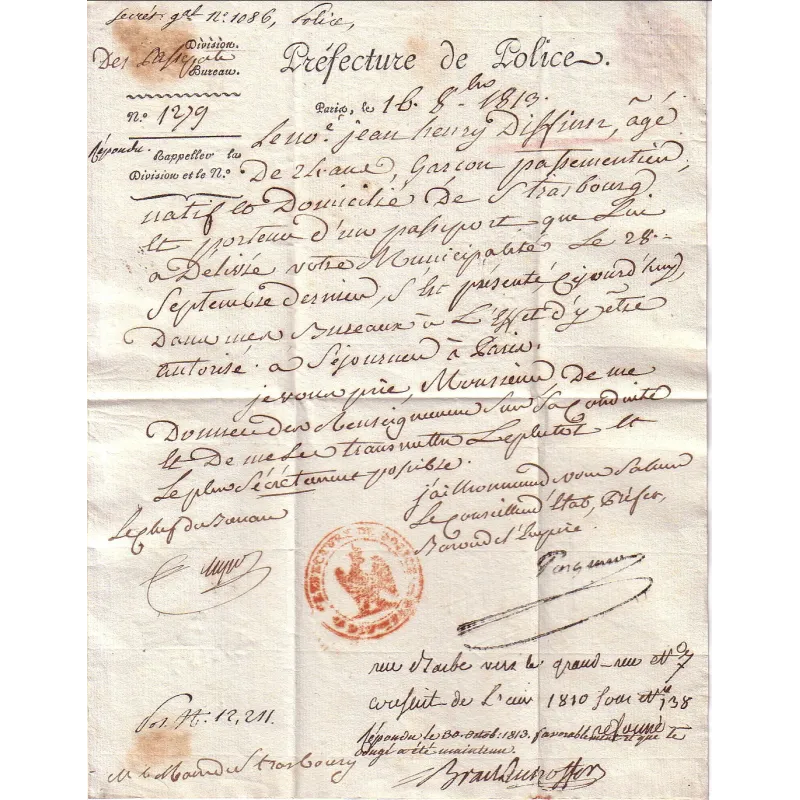 Secrét. gal. No. 1086, Police,
Division.
Des Passeports
Bureau.
Préfecture de Police.
Paris, le 16. 8.bre 1813.
No. 1279
répondu.
Rappeller la
Division et le No.
Le no.é jean henry Diffiner, âgé
De 21 ans, Garçon passementier,
natif et Domicilié De Strasbourg
Et porteur d'un passeport que Lui
a Délivré votre Municipalité Le 28.
Septembre dernier, S'est présenté Cejourd'huy,
Dans mes Bureaux à L'Effet d'y être
autorisé à Séjourner à Paris.
je vous prie, Monsieur De me
Donner des Renseignemens Sur Sa Conduite
Et De me les transmettre Le plutôt Et
Le plus Sécrètement possible.
j'ai l'honneur de vous Saluer
Le Conseiller d'Etat, Préfet,
Baron de l'Empire.
Le Chef du Bureau
Pasquier
PRÉFECTURE DE POLICE
rue vers le grand-rue No 7
de l'an 1810 sous No 138
répondu le 30 octob. 1813. favorablement et que le
congé a été maintenu.
réformé
Pos. H. 12,211.
Mr le Maire de Strasbourg